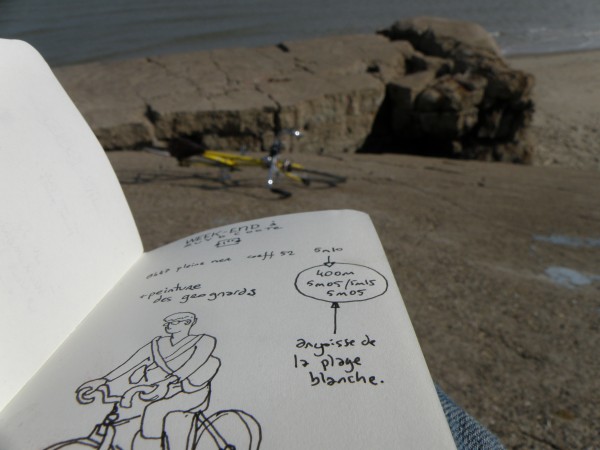 WEEK-END à
pleine mer coeff 52
5m10
400m
5m05/5m15
5m05
peinture
des geognards
angoisse de
la plage
blanche.